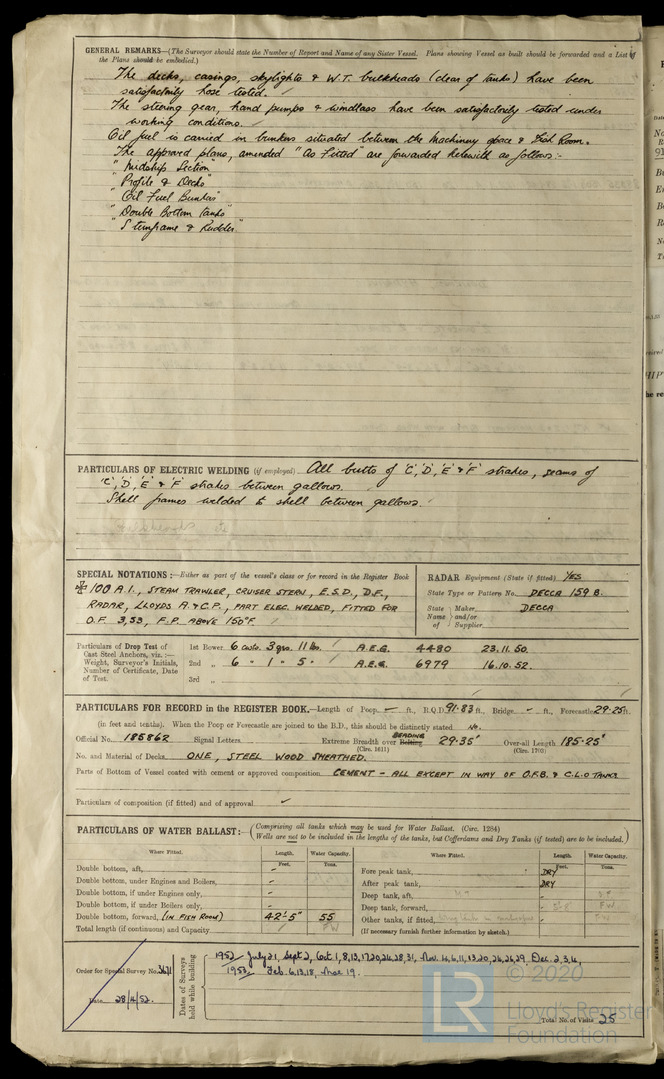 GENERAL REMARKS—(The Surveyor should state the Number of Report and Name of any Sister Vessel. Plans showing Vessel as built should be forwarded and a List of
the Plans should be embodied.)
The decks, casings, skylights & W.T. bulkheads (clear of tanks) have been
satisfactorily hose tested.
The steering gear, hand pumps & windlass have been satisfactorily tested under
working conditions.
Oil fuel is carried in bunkers situated between the Machinery space & Fish Room.
The approved plans, amended "As Fitted" are forwarded herewith as follows:-
"Midship Section"
"Profile & Decks"
"Oil Fuel Bunkers"
"Double Bottom tanks"
"Sternframe & Rudder"
PARTICULARS OF ELECTRIC WELDING (if employed) All butts of 'C', 'D', 'E' & 'F' strakes, seams of
'C', 'D', 'E' & 'F' strakes between gallows.
Shell frames welded to shell between gallows.
SPECIAL NOTATIONS:—Either as part of the vessel's class or for record in the Register Book
✠ 100 A.1., STEAM TRAWLER, CRUISER STERN, E.S.D., D.F.,
RADAR, LLOYDS A.&C.P., PART ELEC. WELDED, FITTED FOR
O.F. 3,53, F.P. ABOVE 150°F.
RADAR Equipment (State if fitted) YES
State Type or Pattern No. DECCA 159 B.
State Name of Maker, and/or Supplier DECCA
Particulars of Drop Test of
Cast Steel Anchors, viz.:—
Weight, Surveyor's Initials,
Number of Certificate, Date
of Test.
1st Bower 6 cwts. 3 qrs. 11 lbs. A.E.G. 4480 23.11.50.
2nd „ 6 " 1 " 5 " A.E.G. 6979 16.10.52.
3rd „
PARTICULARS FOR RECORD in the REGISTER BOOK.—Length of Poop — ft., R.Q.D. 91.83 ft., Bridge - ft., Forecastle 29.25 ft.
(in feet and tenths). When the Poop or Forecastle are joined to the B.D., this should be distinctly stated No.
Official No. 185862 Signal Letters Extreme Breadth over Belting BEADING 29.35' Over-all Length 185.25'
(Circ. 1611) (Circ. 1703)
No. and Material of Decks ONE, STEEL WOOD SHEATHED.
Parts of Bottom of Vessel coated with cement or approved composition CEMENT - ALL EXCEPT IN WAY OF O.F.B. & C.L.O TANKS
Particulars of composition (if fitted) and of approval
PARTICULARS OF WATER BALLAST:— (Comprising all tanks which may be used for Water Ballast. (Circ. 1284)
Wells are not to be included in the lengths of the tanks, but Cofferdams and Dry Tanks (if tested) are to be included.)
Where Fitted. Length. Water Capacity. Where Fitted. Length. Water Capacity.
Feet. Tons. Feet. Tons.
Double bottom, aft, - Fore peak tank, DRY
Double bottom, under Engines and Boilers, - After peak tank, DRY
Double bottom, if under Engines only, - Deep tank, aft,
Double bottom, if under Boilers only, - Deep tank, forward,
Double bottom, forward, (IN FISH ROOM) 42'-5" 55 Other tanks, if fitted,
Total length (if continuous) and Capacity FW (If necessary furnish further information by sketch.)
Order for Special Survey No.
Date 28/4/52.
Dates of Surveys held while building
1952 July 21, Sept 2, Oct 1, 8, 13, 17, 20, 24, 28, 31, Nov 4, 6, 11, 13, 20, 24, 26, 29, Dec. 2, 3, 4,
1953 Feb. 6, 13, 18, Mar 19.
Total No. of Visits 25
LR
© 2020
Lloyd's Register
Foundation